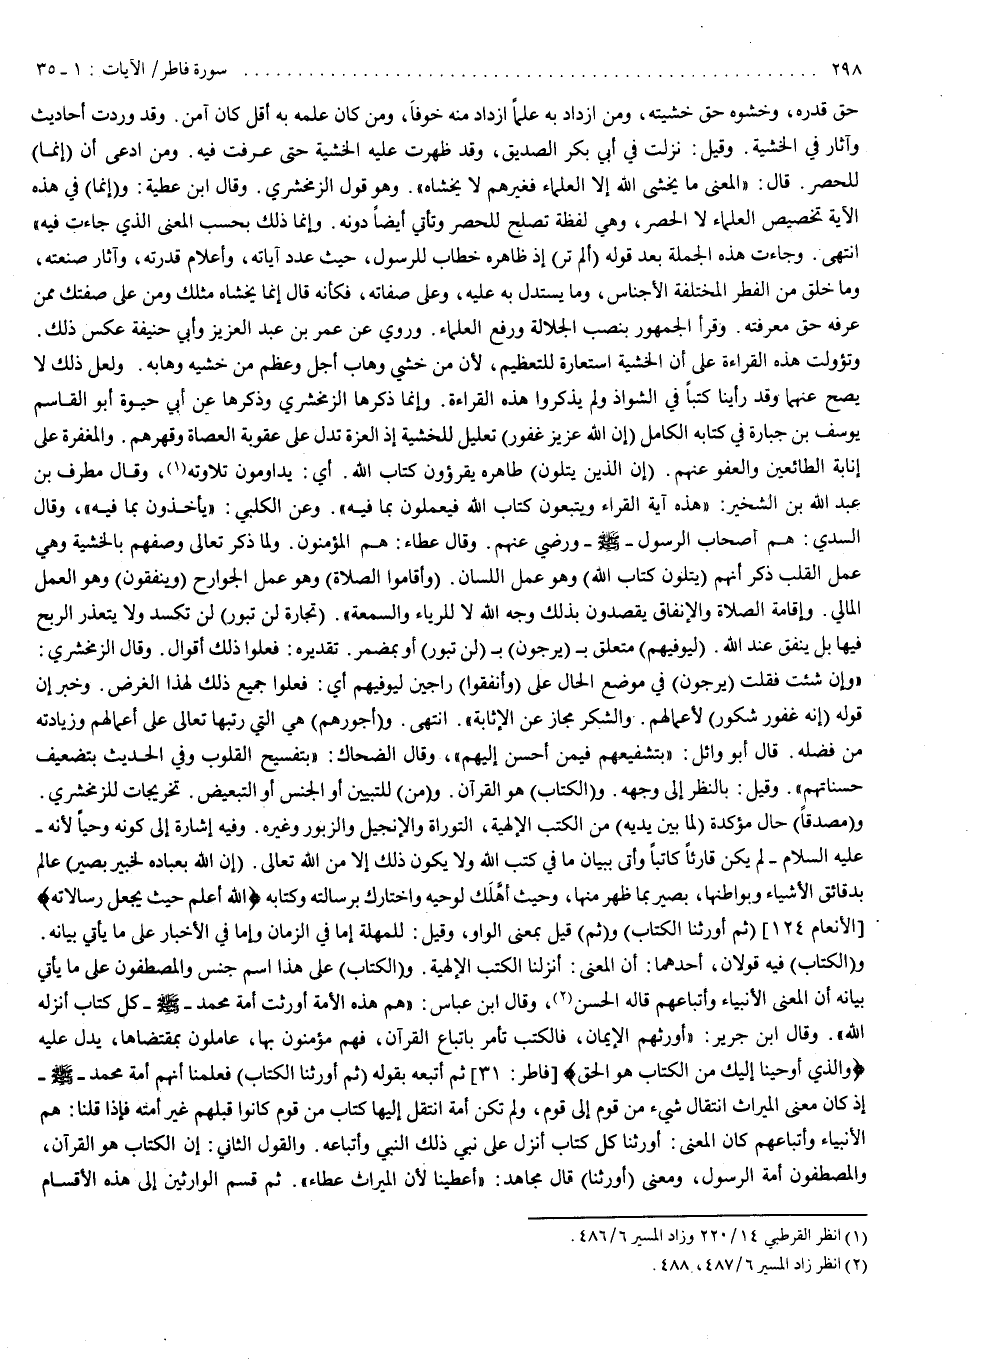 ٢٩٨ ...................................................... سورة فاطر/ الآيات : ١ ـ ٣٥
حق قدره، وخشوه حق خشيته، ومن ازداد به علماً ازداد منه خوفاً، ومن كان علمه به أقل كان آمن. وقد وردت أحاديث
وآثار في الخشية. وقيل: نزلت في أبي بكر الصديق، وقد ظهرت عليه الخشية حتى عرفت فيه. ومن ادعى أن (إنما)
للحصر. قال: «المعنى ما يخشى الله إلا العلماء فغيرهم لا يخشاه». وهو قول الزمخشري. وقال ابن عطية: و(إنما) في هذه
الآية تخصيص العلماء لا الحصر، وهي لفظة تصلح للحصر وتأتي أيضاً دونه. وإنما ذلك بحسب المعنى الذي جاءت فيه»
انتهى. وجاءت هذه الجملة بعد قوله (ألم تر) إذ ظاهره خطاب للرسول، حيث عدد آياته، وأعلام قدرته، وآثار صنعته،
وما خلق من الفطر المختلفة الأجناس، وما يستدل به عليه، وعلى صفاته، فكأنه قال إنما يخشاه مثلك ومن على صفتك ممن
عرفه حق معرفته. وقرأ الجمهور بنصب الجلالة ورفع العلماء. وروي عن عمر بن عبد العزيز وأبي حنيفة عكس ذلك.
وتؤولت هذه القراءة على أن الخشية استعارة للتعظيم، لأن من خشي وهاب أجل وعظم من خشيه وهابه. ولعل ذلك لا
يصح عنهما وقد رأينا كتباً في الشواذ ولم يذكروا هذه القراءة. وإنما ذكرها الزمخشري وذكرها عن أبي حيوة أبو القاسم
يوسف بن جبارة في كتابه الكامل (إن الله عزيز غفور) تعليل للخشية إذ العزة تدل على عقوبة العصاة وقهرهم. والمغفرة على
إنابة الطائعين والعفو عنهم. (إن الذين يتلون) ظاهره يقرؤون كتاب الله. أي: يداومون تلاوته(١)، وقال مطرف بن
عبد الله بن الشخير: «هذه آية القراء ويتبعون كتاب الله فيعملون بما فيه». وعن الكلبي: «يأخذون بما فيه»، وقال
السدي: هم أصحاب الرسول ـ ﷺ ـ ورضي عنهم. وقال عطاء: هم المؤمنون. ولما ذكر تعالى وصفهم بالخشية وهي
عمل القلب ذكر أنهم (يتلون كتاب الله) وهو عمل اللسان. (وأقاموا الصلاة) وهو عمل الجوارح (وينفقون) وهو العمل
المالي. وإقامة الصلاة والإنفاق يقصدون بذلك وجه الله لا للرياء والسمعة». (تجارة لن تبور) لن تكسد ولا يتعذر الربح
فيها بل ينفق عند الله. (ليوفيهم) متعلق بـ (يرجون) بـ (لن تبور) أو بمضمر. تقديره: فعلوا ذلك أقوال. وقال الزمخشري:
«وإن شئت فقلت (يرجون) في موضع الحال على (وأنفقوا) راجين ليوفيهم أي: فعلوا جميع ذلك لهذا الغرض. وخبر إن
قوله (إنه غفور شكور) لأعمالهم. والشكر مجاز عن الإثابة». انتهى. و(أجورهم) هي التي رتبها تعالى على أعمالهم وزيادته
من فضله. قال أبو وائل: «بتشفيعهم فيمن أحسن إليهم»، وقال الضحاك: «بتفسيح القلوب وفي الحديث بتضعيف
حسناتهم». وقيل: بالنظر إلى وجهه. و(الكتاب) هو القرآن. و(من) للتبيين أو الجنس أو التبعيض. تخريجات للزمخشري.
و(مصدقاً) حال مؤكدة (لما بين يديه) من الكتب الإلهية، التوراة والإنجيل والزبور وغيره. وفيه إشارة إلى كونه وحياً لأنه ـ
عليه السلام ـ لم يكن قارئاً كاتباً وأتى ببيان ما في كتب الله ولا يكون ذلك إلا من الله تعالى. (إن الله بعباده لخبير بصير) عالم
بدقائق الأشياء وبواطنها، بصير بما ظهر منها، وحيث أهَّلَك لوحيه واختارك برسالته وكتابه ﴿الله أعلم حيث يجعل رسالاته﴾
[الأنعام ١٢٤] (ثم أورثنا الكتاب) و(ثم) قيل بمعنى الواو، وقيل: للمهلة إما في الزمان وإما في الأخبار على ما يأتي بيانه.
و(الكتاب) فيه قولان، أحدهما: أن المعنى: أنزلنا الكتب الإلهية. و(الكتاب) على هذا اسم جنس والمصطفون على ما يأتي
بيانه أن المعنى الأنبياء وأتباعهم قاله الحسن(٢)، وقال ابن عباس: «هم هذه الأمة أورثت أمة محمد ـ ﷺ ـ كل كتاب أنزله
الله». وقال ابن جرير: «أورثهم الإيمان، فالكتب تأمر باتباع القرآن، فهم مؤمنون بها، عاملون بمقتضاها، يدل عليه
﴿والذي أوحينا إليك من الكتاب هو الحق﴾ [فاطر: ٣١] ثم أتبعه بقوله (ثم أورثنا الكتاب) فعلمنا أنهم أمة محمد ـ ﷺ ـ
إذ كان معنى الميراث انتقال شيء من قوم إلى قوم، ولم تكن أمة انتقل إليها كتاب من قوم كانوا قبلهم غير أمته فإذا قلنا: هم
الأنبياء وأتباعهم كان المعنى: أورثنا كل كتاب أنزل على نبي ذلك النبي وأتباعه. والقول الثاني: إن الكتاب هو القرآن،
والمصطفون أمة الرسول، ومعنى (أورثنا) قال مجاهد: «أعطينا لأن الميراث عطاء». ثم قسم الوارثين إلى هذه الأقسام
(١) انظر القرطبي ١٤/ ٢٢٠ وزاد المسير ٦/ ٤٨٦.
(٢) انظر زاد المسير ٦/ ٤٨٧، ٤٨٨.